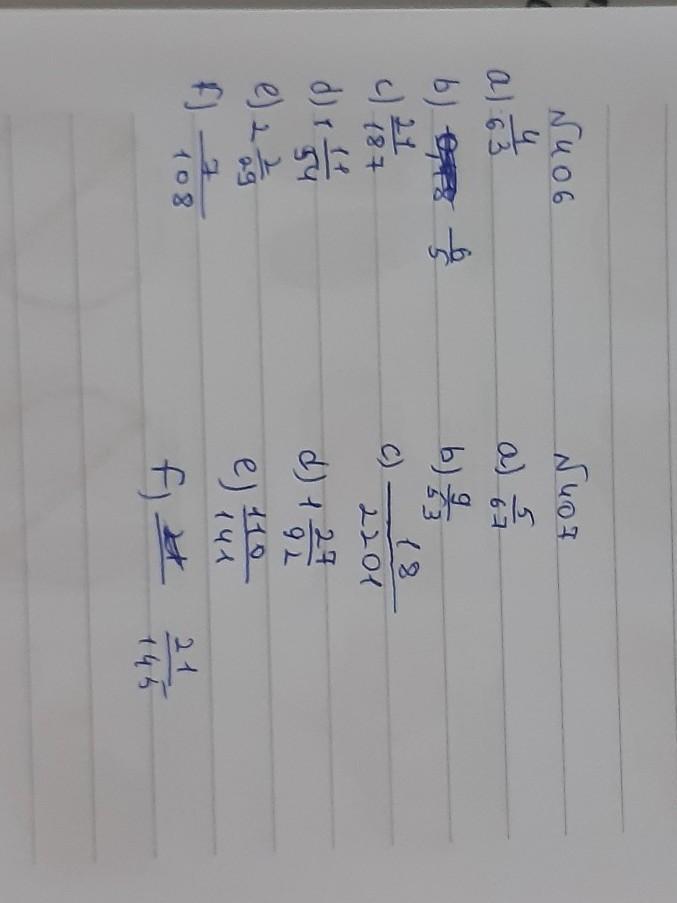 №406
a) 4/63
b) 6/5
c) 21/187
d) 1 11/54
e) 2 2/29
f) 7/108
№407
a) 5/67
b) 9/53
c) 18/2201
d) 1 27/92
e) 110/141
f) 21/145